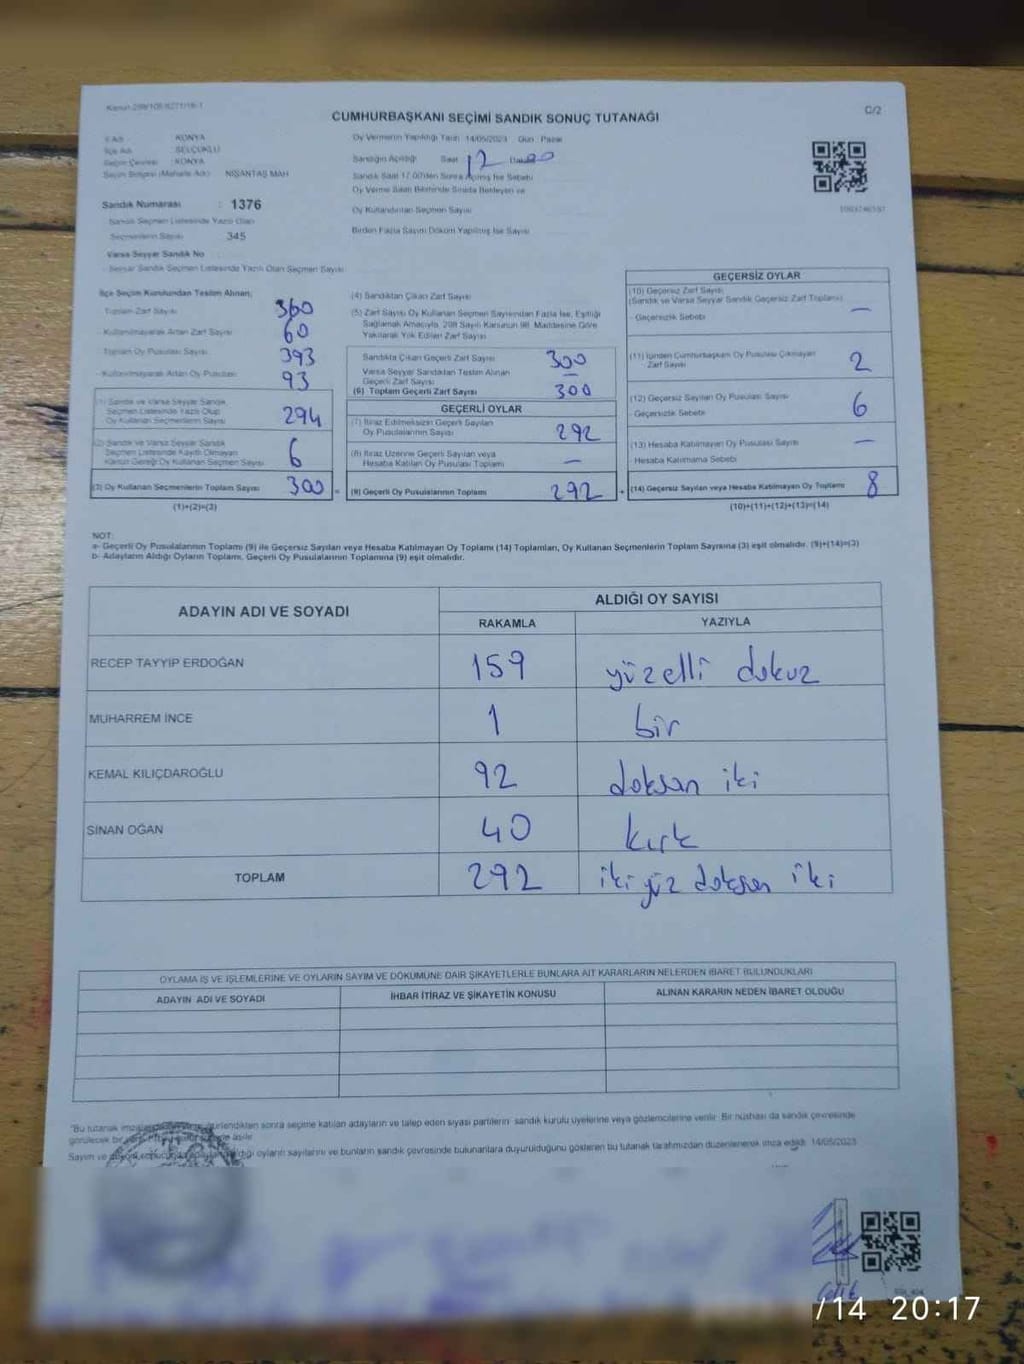 CUMHURBAŞKANI SEÇİMİ SANDIK SONUÇ TUTANAĞI
C/2
İl Adı : KONYA
İlçe Adı : SELÇUKLU
Seçim Çevresi : KONYA
Seçim Bölgesi (Mahalle Adı) : NİŞANTAŞ MAH
Sandık Numarası : 1376
Sandık Seçmen Listesinde Yazılı Olan
Seçmenlerin Sayısı : 345
Varsa Seyyar Sandık No
Seyyar Sandık Seçmen Listesinde Yazılı Olan Seçmen Sayısı
Oy Vermenin Yapıldığı Tarih 14/05/2023 Gün Pazar
Sandığın Açıldığı Saat 17
Sandık Saat 17.00'den Sonra Açılmış İse Sebebi
Oy Verme Saati Bitiminde Sırada Bekleyen ve
Oy Kullandırılan Seçmen Sayısı
Birden Fazla Sayım Döküm Yapılmış İse Sayısı
İlçe Seçim Kurulundan Teslim Alınan;
Toplam Zarf Sayısı 360
- Kullanılmayarak Artan Zarf Sayısı 60
Toplam Oy Pusulası Sayısı 393
- Kullanılmayarak Artan Oy Pusulası 93
(1) Sandık ve Varsa Seyyar Sandık
Seçmen Listesinde Yazılı Olup
Oy Kullanan Seçmenlerin Sayısı 294
(2) Sandık ve Varsa Seyyar Sandık
Seçmen Listesinde Kayıtlı Olmayan
Kanun Gereği Oy Kullanan Seçmen Sayısı 6
(3) Oy Kullanan Seçmenlerin Toplam Sayısı 300 =
(1)+(2)=(3)
(4) Sandıktan Çıkan Zarf Sayısı
(5) Zarf Sayısı Oy Kullanan Seçmen Sayısından Fazla İse, Eşitliği
Sağlamak Amacıyla, 298 Sayılı Kanunun 98. Maddesine Göre
Yakılarak Yok Edilen Zarf Sayısı
Sandıkta Çıkan Geçerli Zarf Sayısı 300
Varsa Seyyar Sandıktan Teslim Alınan
Geçerli Zarf Sayısı —
(6) Toplam Geçerli Zarf Sayısı 300
GEÇERLİ OYLAR
(7) İtiraz Edilmeksizin Geçerli Sayılan
Oy Pusulalarının Sayısı 292
(8) İtiraz Üzerine Geçerli Sayılan veya
Hesaba Katılan Oy Pusulası Toplamı —
(9) Geçerli Oy Pusulalarının Toplamı 292 +
GEÇERSİZ OYLAR
(10) Geçersiz Zarf Sayısı
(Sandık ve Varsa Seyyar Sandık Geçersiz Zarf Toplamı) —
- Geçersizlik Sebebi
(11) İçinden Cumhurbaşkanı Oy Pusulası Çıkmayan
Zarf Sayısı 2
(12) Geçersiz Sayılan Oy Pusulası Sayısı 6
- Geçersizlik Sebebi
(13) Hesaba Katılmayan Oy Pusulası Sayısı —
- Hesaba Katılmama Sebebi
(14) Geçersiz Sayılan veya Hesaba Katılmayan Oy Toplamı 8
(10)+(11)+(12)+(13)=(14)
NOT:
a- Geçerli Oy Pusulalarının Toplamı (9) ile Geçersiz Sayılan veya Hesaba Katılmayan Oy Toplamı (14) Toplamları, Oy Kullanan Seçmenlerin Toplam Sayısına (3) eşit olmalıdır. (9)+(14)=(3)
b- Adayların Aldığı Oyların Toplamı, Geçerli Oy Pusulalarının Toplamına (9) eşit olmalıdır.
ADAYIN ADI VE SOYADI
ALDIĞI OY SAYISI
RAKAMLA YAZIYLA
RECEP TAYYİP ERDOĞAN 159 yüzelli dokuz
MUHARREM İNCE 1 bir
KEMAL KILIÇDAROĞLU 92 doksan iki
SİNAN OĞAN 40 kırk
TOPLAM 292 iki yüz doksan iki
OYLAMA İŞ VE İŞLEMLERİNE VE OYLARIN SAYIM VE DÖKÜMÜNE DAİR ŞİKAYETLERLE BUNLARA AİT KARARLARIN NELERDEN İBARET BULUNDUKLARI
ADAYIN ADI VE SOYADI İHBAR İTİRAZ VE ŞİKAYETİN KONUSU ALINAN KARARIN NEDEN İBARET OLDUĞU
"Bu tutanak sonra seçime katılan adayların ve talep eden siyasi partilerin sandık kurulu üyelerine veya gözlemcilerine verilir. Bir nüshası da sandık çevresinde
görülecek bir asılır.
Sayım ve oylarıı sayılarını ve bunların sandık çevresinde bulunanlara duyurulduğunu gösteren bu tutanak tarafımızdan düzenlenerek imza edildi. 14/05/2023
/14 20:17